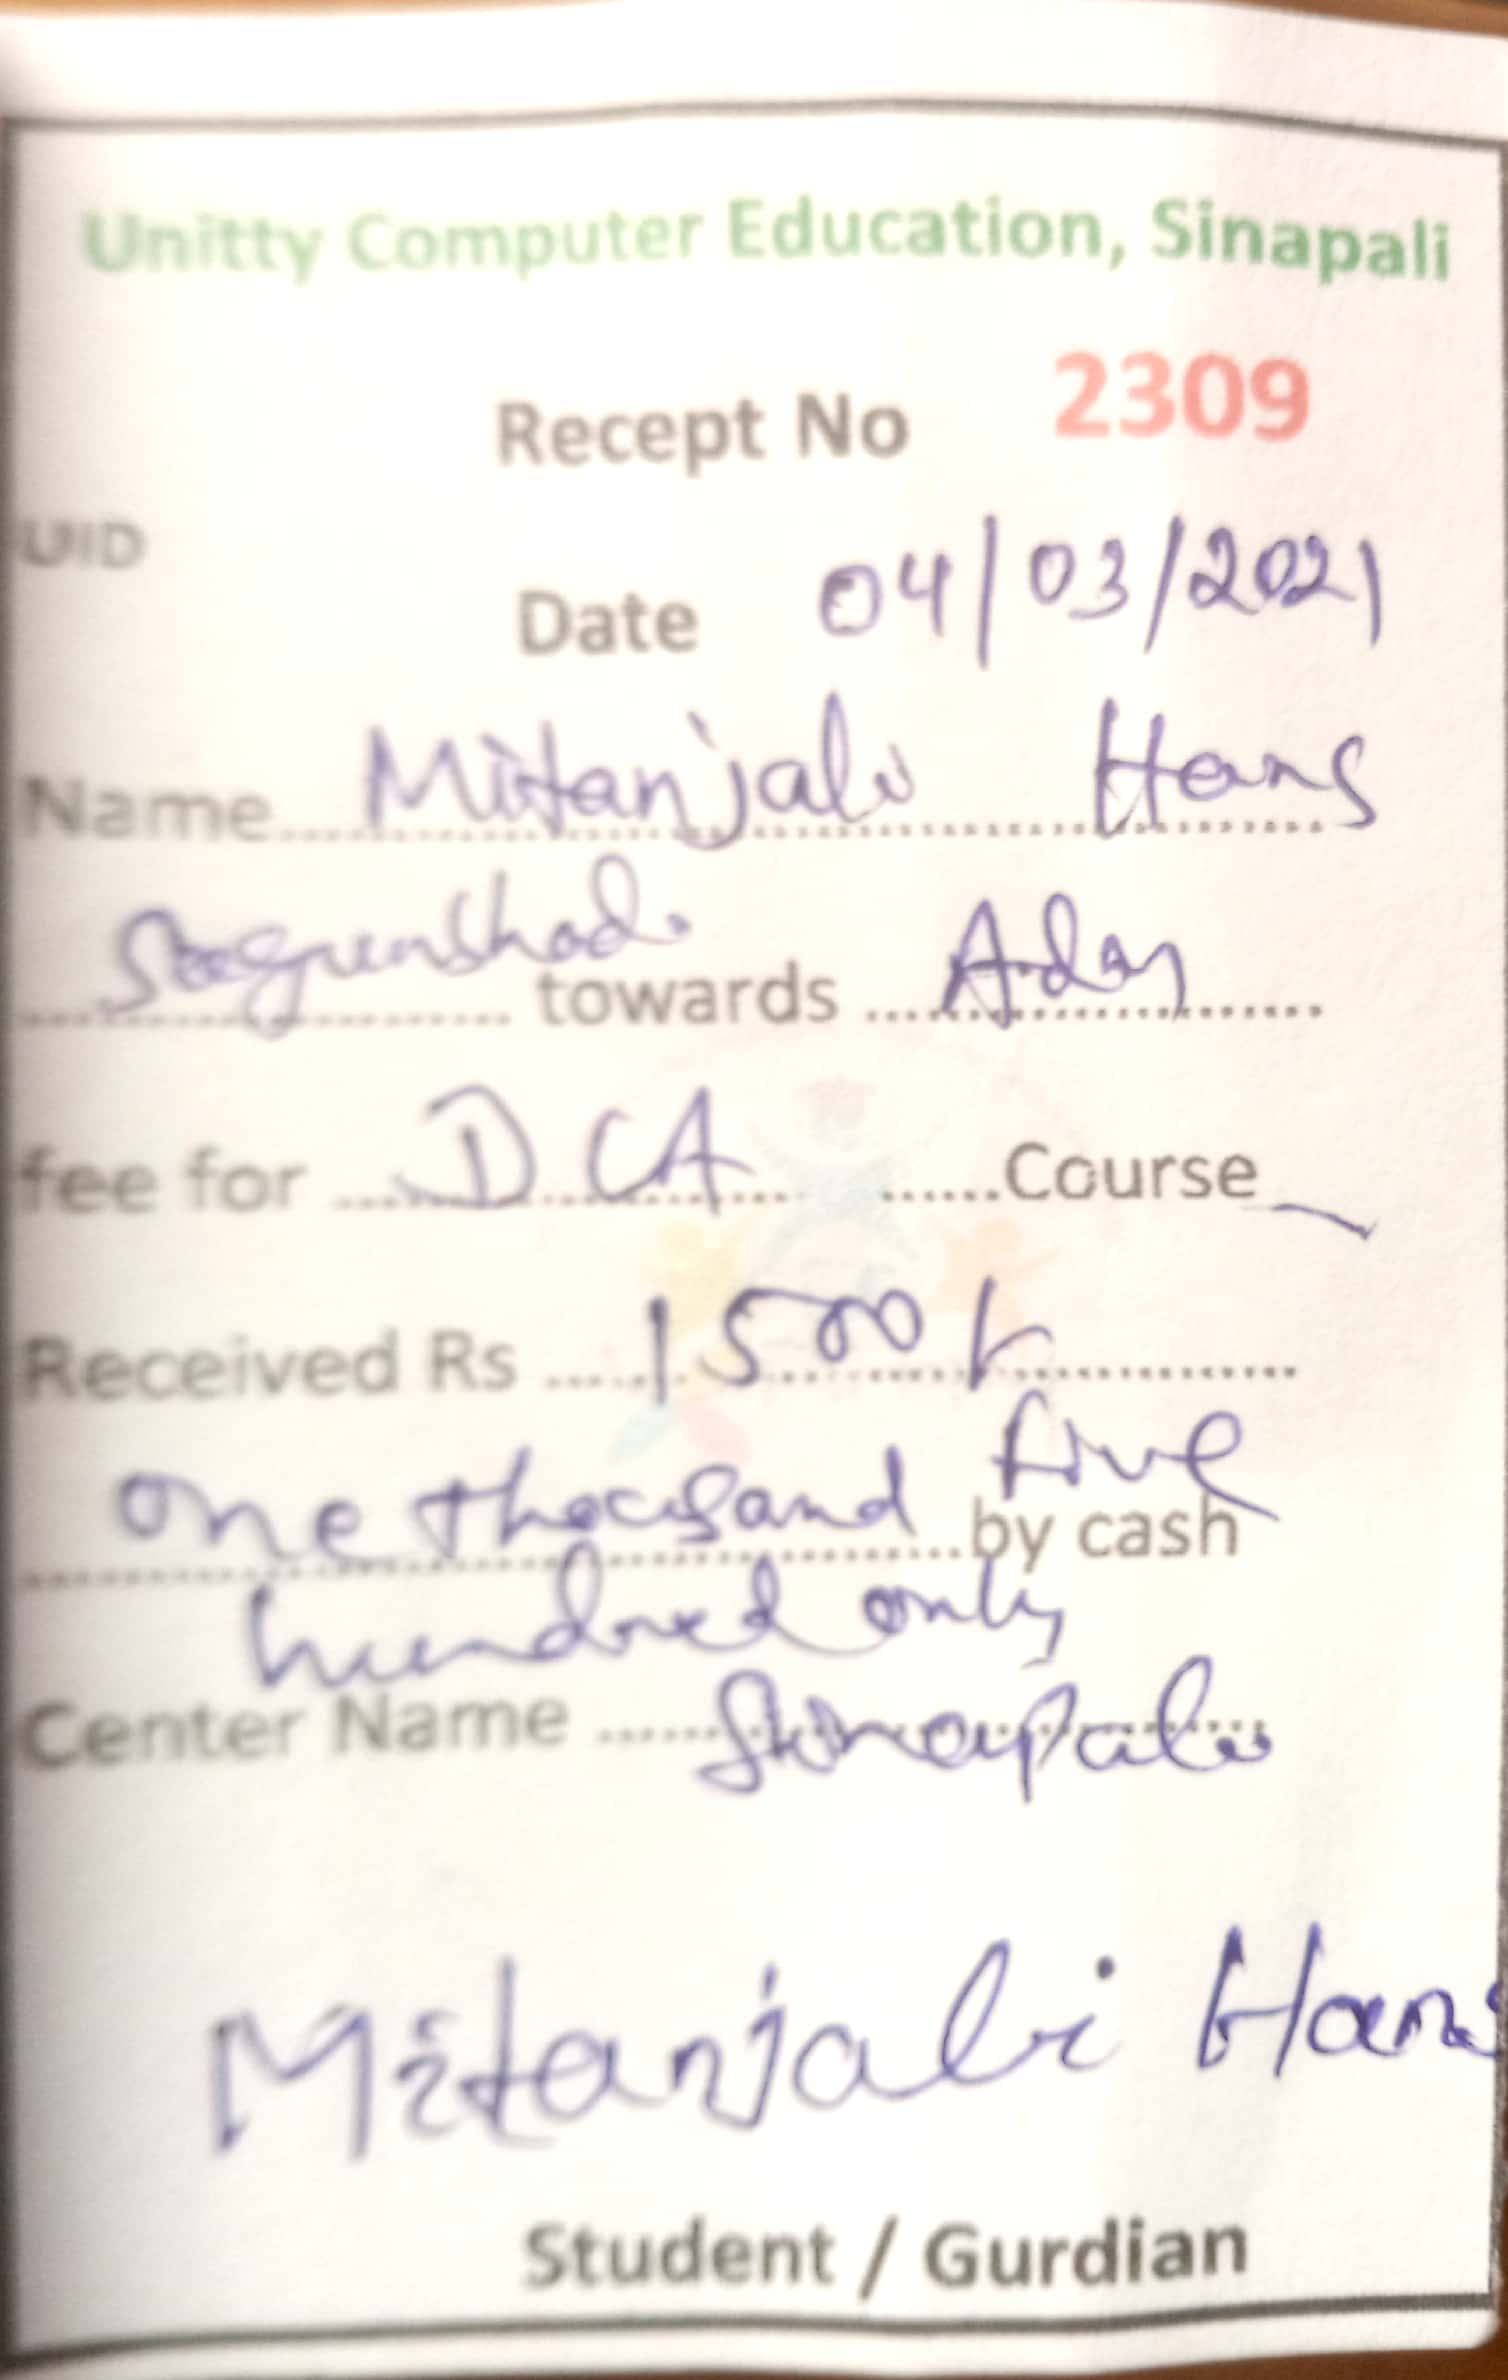 Unitty Computer Education, Sinapali
Recept No 2309
UID
Date 04/03/2021
Name Mitanjali Hans
towards Adm
fee for DCA Course
Received Rs 1500/-
one thousand five
by cash
hundred only
Center Name Sinapali
Mitanjali Hans
Student / Gurdian